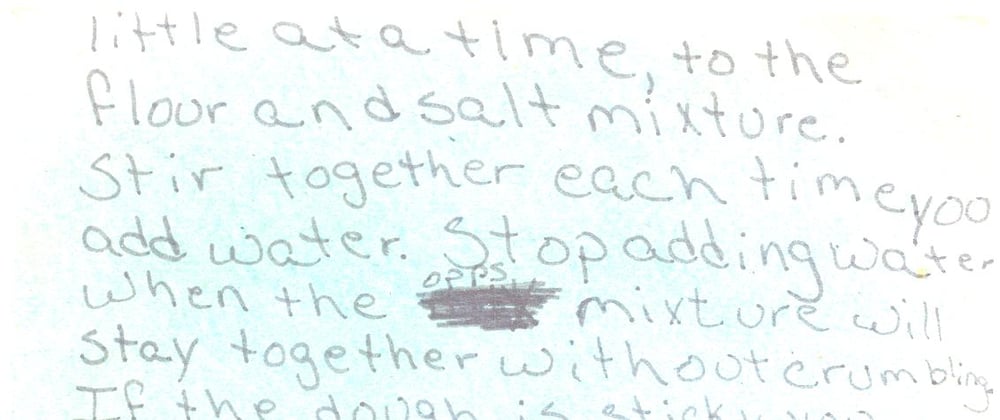 little at a time, to the
flour and salt mixture.
Stir together each time yoo
add water. Stop adding water
opps
when the mixture will
stay together without crumbling.
If the dough is sticky you